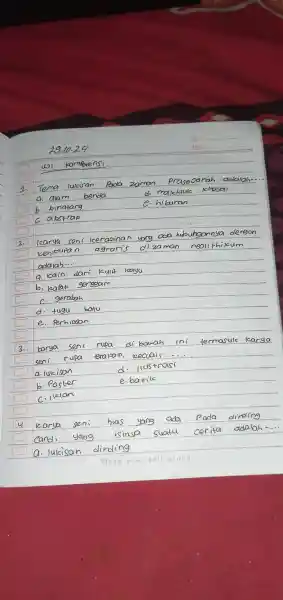 29.10.24
Uji Kompetensi
1. Tema lukisan Pada zaman Prasejarah adalah....
a. alam benda d. makhluk khayal
b. binatang e. hiburan
c. abstrak
2. Karya seni kerajinan yang ada hubungannya dengan
agraris di zaman neolithikum
adalah...
a. kain dari kulit kayu
b. kapak genggam
c. gerabah
d. tugu batu
e. Perhiasan
3. karya seni rupa di bawah ini termasuk karya
seni rupa terapan, kecuali ....
a. lukisan d. ilustrasi
b. Poster e. batik
c. iklan
4. karya seni hias yang ada Pada dinding
candi yang isinya suatu cerita adalah....
a. lukisan dinding